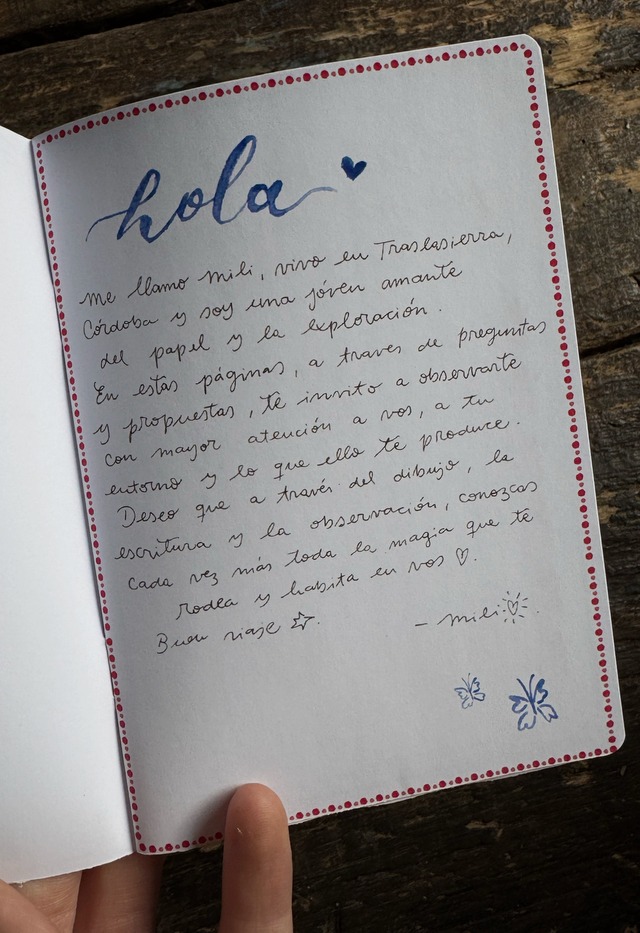 hola
Me llamo Mili, vivo en Traslasierra,
Córdoba y soy una jóven amante
del papel y la exploración.
En estas páginas, a traves de preguntas
y propuestas, te invito a observarte
con mayor atención a vos, a tu
entorno y lo que ello te produce.
Deseo que a través del dibujo, la
escritura y la observación, conozcas
cada vez más toda la magia que te
rodea y habita en vos ♡.
Buen viaje ☆.
- Mili